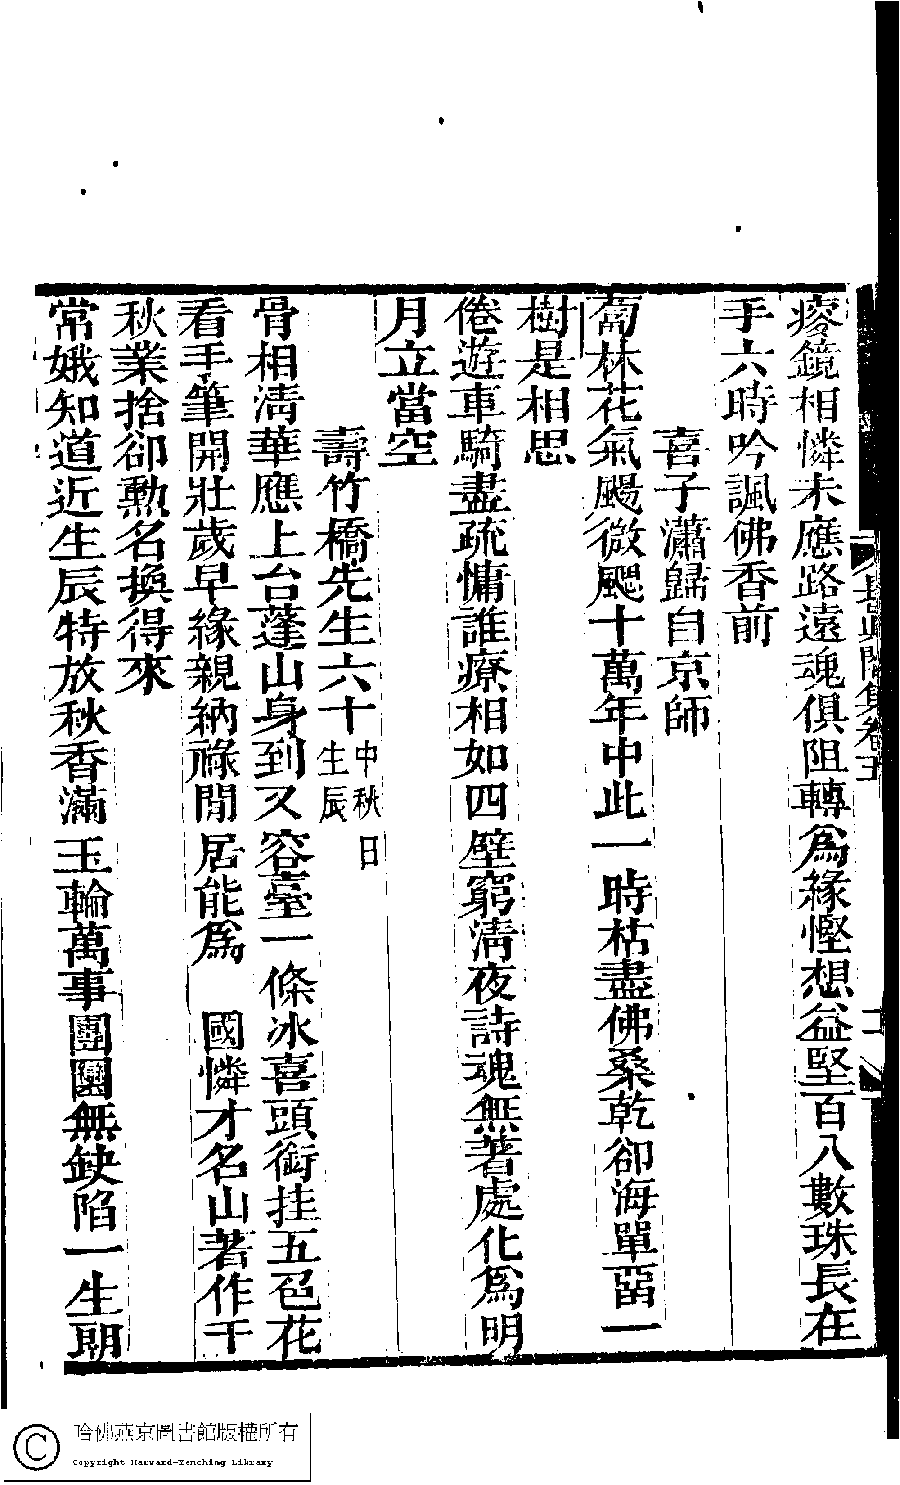 痿鏡相憐未應路遠魂俱阻轉爲緣慳想益堅百八數珠長在
手六時吟諷佛香前
喜子瀟歸自京師
蔔林花氣颺微颸十萬年中此一時枯盡佛桑乾卻海單畱一
樹是相思
倦遊車騎盡疏慵誰療相如四壁窮淸夜詩魂無著處化爲明
月立當空
壽竹橋先生六十中秋日生辰
骨相淸華應上台蓬山身到又容臺一條冰喜頭銜挂五色花
看手筆開壯歲早緣親納祿閒居能爲 國憐才名山著作千
秋業捨卻勳名換得來
常娥知道近生辰特放秋香滿玉輪萬事團圞無缺陷一生朗
長眞閣集卷五
哈佛燕京圖書館版權所有
Copyright Harvard-Yenching Library